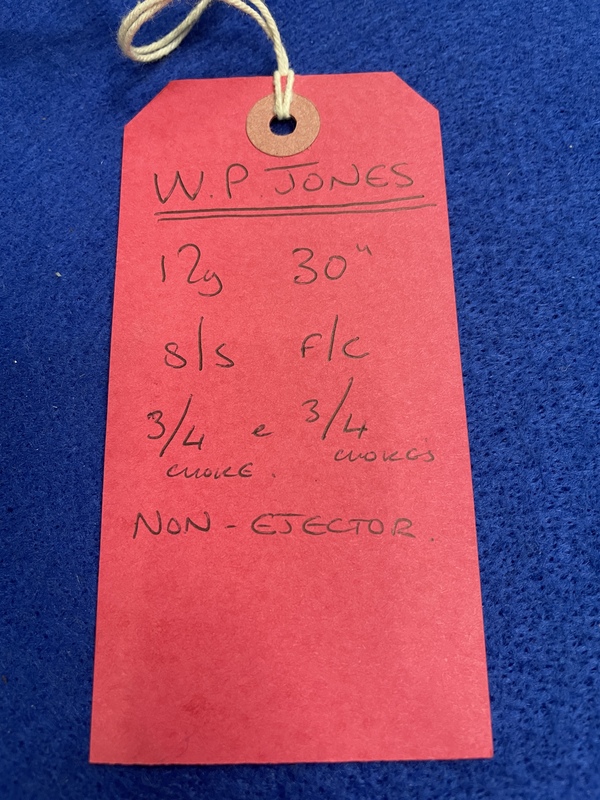 W.P. JONES
12g 30"
S/S F/C
3/4 e 3/4
CHOKE. CHOKES
NON-EJECTOR.